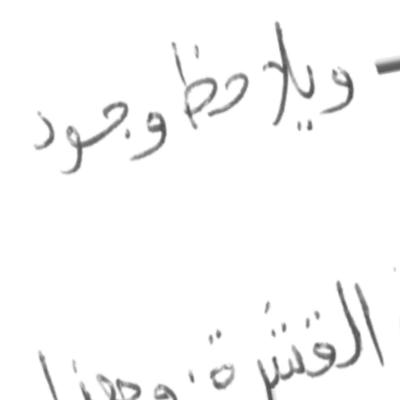 - ويلاحظ وجود
القشرة. وهنا